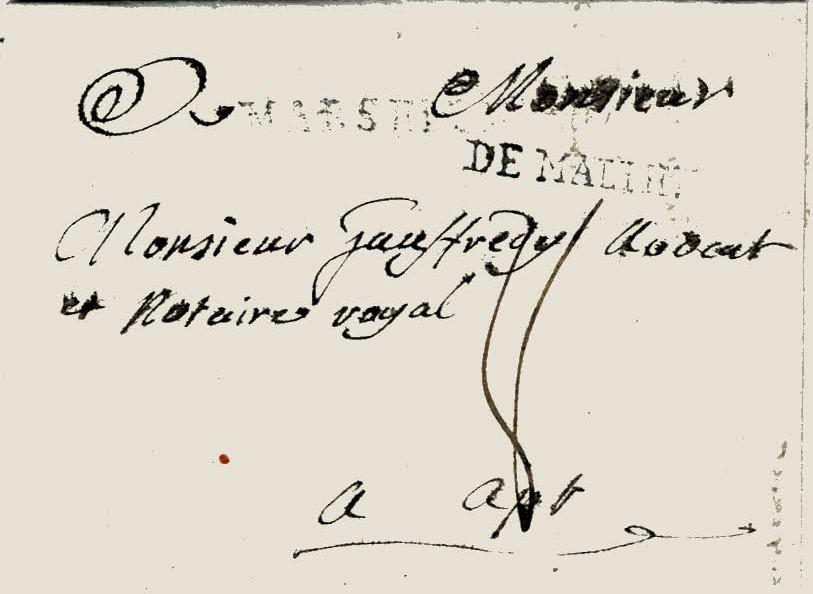 Monsieur
DE MALIJAI
Monsieur Gauffredy Avocat
et Notaire royal
a apt